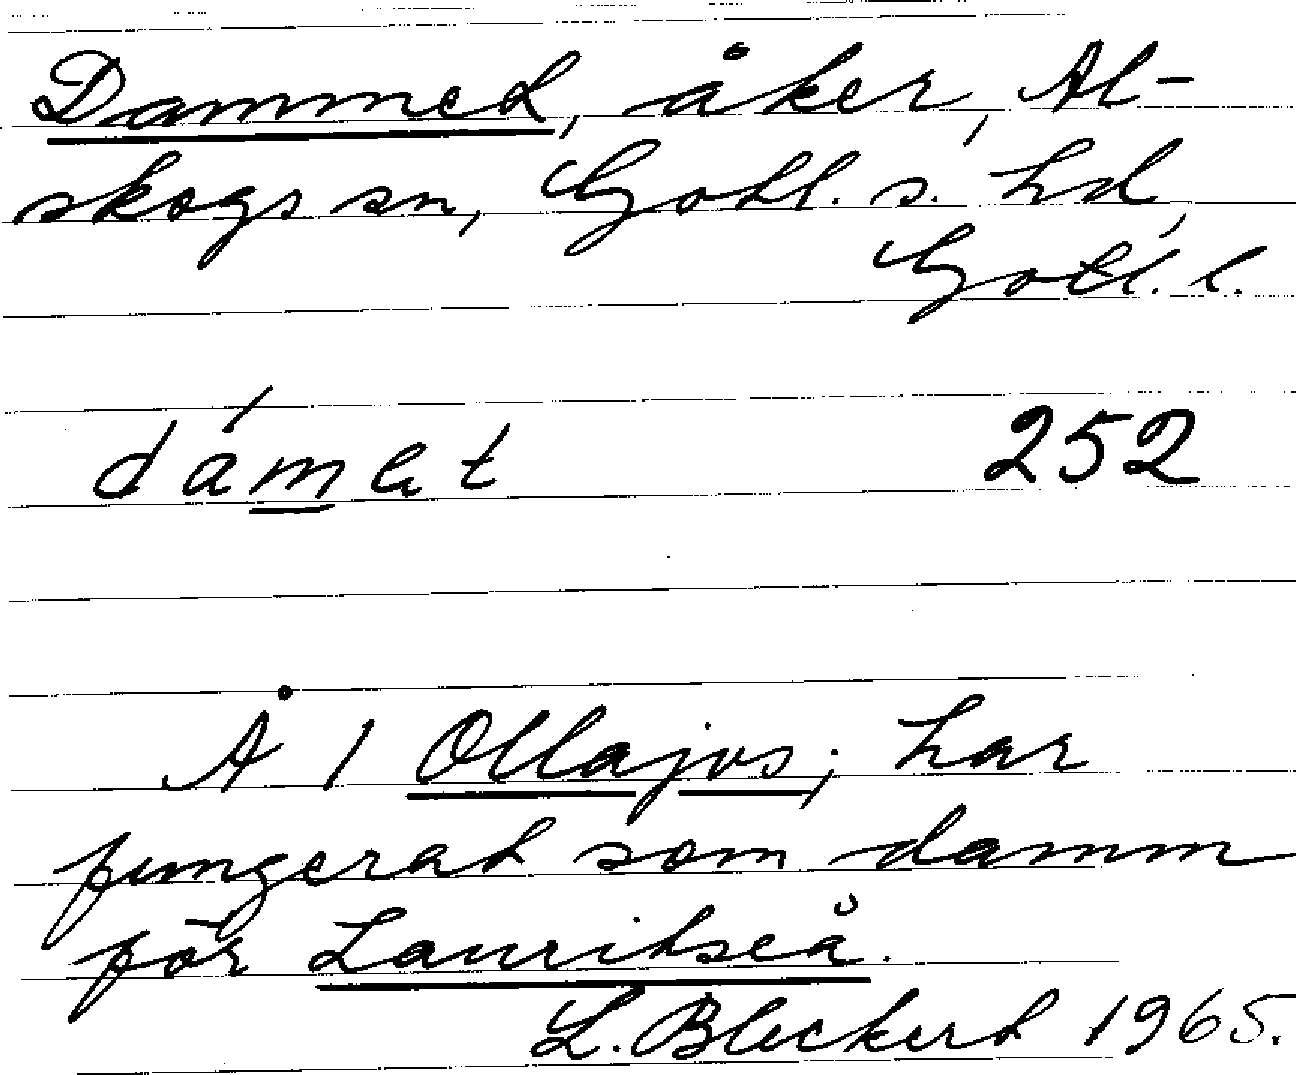 Dammet, åker, Al-
skogs sn, Gotl. s. hd,
Gotl. l.
dámet 252
Å 1 Ollajvs; har
fungerat som damm
för Lauritseå.
L. Bleckert 1965.